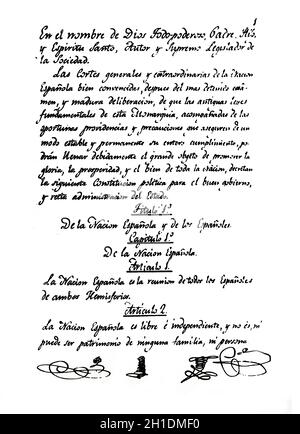 1
En el nombre de Dios Todopoderoso, Padre, Hijo,
y Espiritu Santo, Autor y Supremo Legislador de
la Sociedad.
Las Cortes generales y extraordinarias de la Nacion
Española bien convencidas, despues del mas detenido exa-
men, y madura deliberacion, de que las antiguas leyes
fundamentales de esta Monarquia, acompañadas de las
oportunas providencias y precauciones, que aseguren de un
modo estable y permanente su entero cumplimiento, po-
drán llenar debidamente el grande objeto de promover la
gloria, la prosperidad, y el bien de toda la Nacion, decretan
la siguiente Constitucion politica para el buen gobierno,
y recta administracion del Estado.
Titulo 1º
De la Nacion Española y de los Españoles.
Capitulo 1º
De la Nacion Española.
Articulo 1.
La Nacion Española es la reunion de todos los Españoles
de ambos Hemisferios.
Articulo 2.
La Nacion Española es libre é independiente, y no es, ni
puede ser patrimonio de ninguna familia, ni persona
alamy
Image ID: 2H1DMF0
www.alamy.com